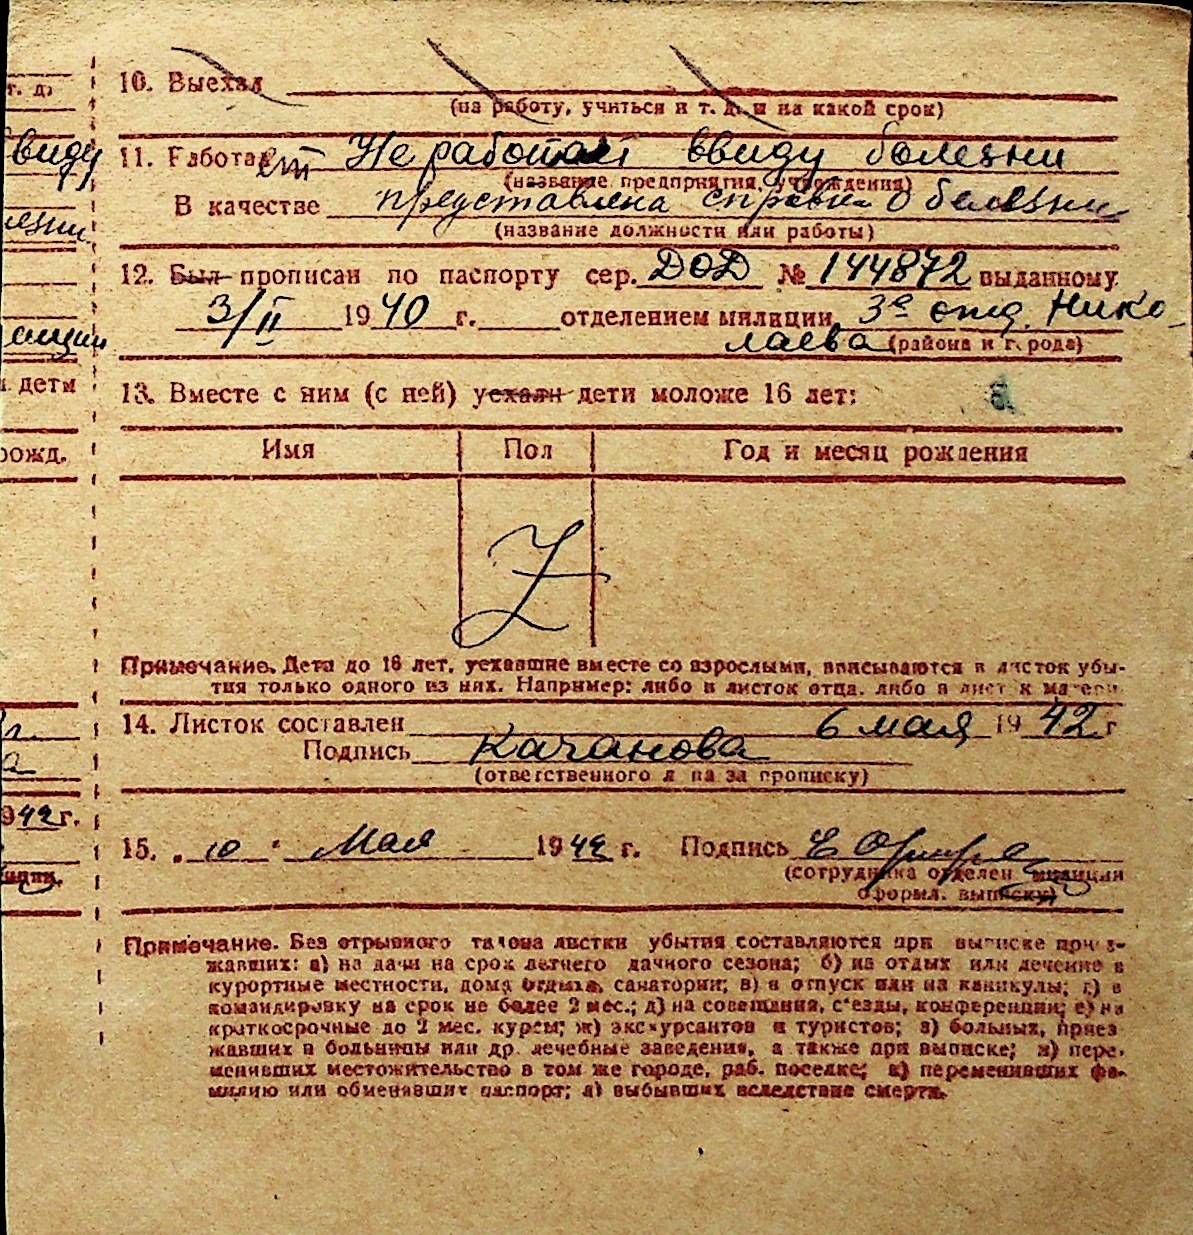 г. д.
10. Выехал
(на работу, учиться и т. д. и на какой срок)
ввиду
11. Работает Не работает ввиду болезни
(название предприятия, учреждения)
В качестве представлена справка о болезни
(название должности или работы)
12. Был прописан по паспорту сер. ДОД № 144872 выданному
3/II 1940 г. отделением милиции 3е отд. Нико-
лаева (района и города)
дети
13. Вместе с ним (с ней) уехали дети моложе 16 лет:
рожд.
Имя Пол Год и месяц рождения
Z
Примечание. Дети до 16 лет, уехавшие вместе со взрослыми, вписываются в листок убы-
тия только одного из них. Например: либо в листок отца, либо в лист к матери
14. Листок составлен 6 мая 1942 г
Подпись Качанова
(ответственного л на за прописку)
942 г.
15. „10" Мая 1942 г. Подпись
(сотрудника отделен милиции
оформл. выписку)
Примечание. Без отрывного талона листки убытия составляются при выписке приез-
жавших: а) на дачи на срок летнего дачного сезона; б) на отдых или лечение в
курортные местности, дома отдыха, санатории; в) в отпуск или на каникулы; г) в
командировку на срок не более 2 мес.; д) на совещания, с'езды, конференции; е) на
краткосрочные до 2 мес. курсы; ж) экскурсантов и туристов; з) больных, приез
жавших в больницы или др. лечебные заведения, а также при выписке; и) пере-
менивших местожительство в том же городе, раб. поселке; к) переменивших фа-
милию или обменявших паспорт; л) выбывших вследствие смерти.